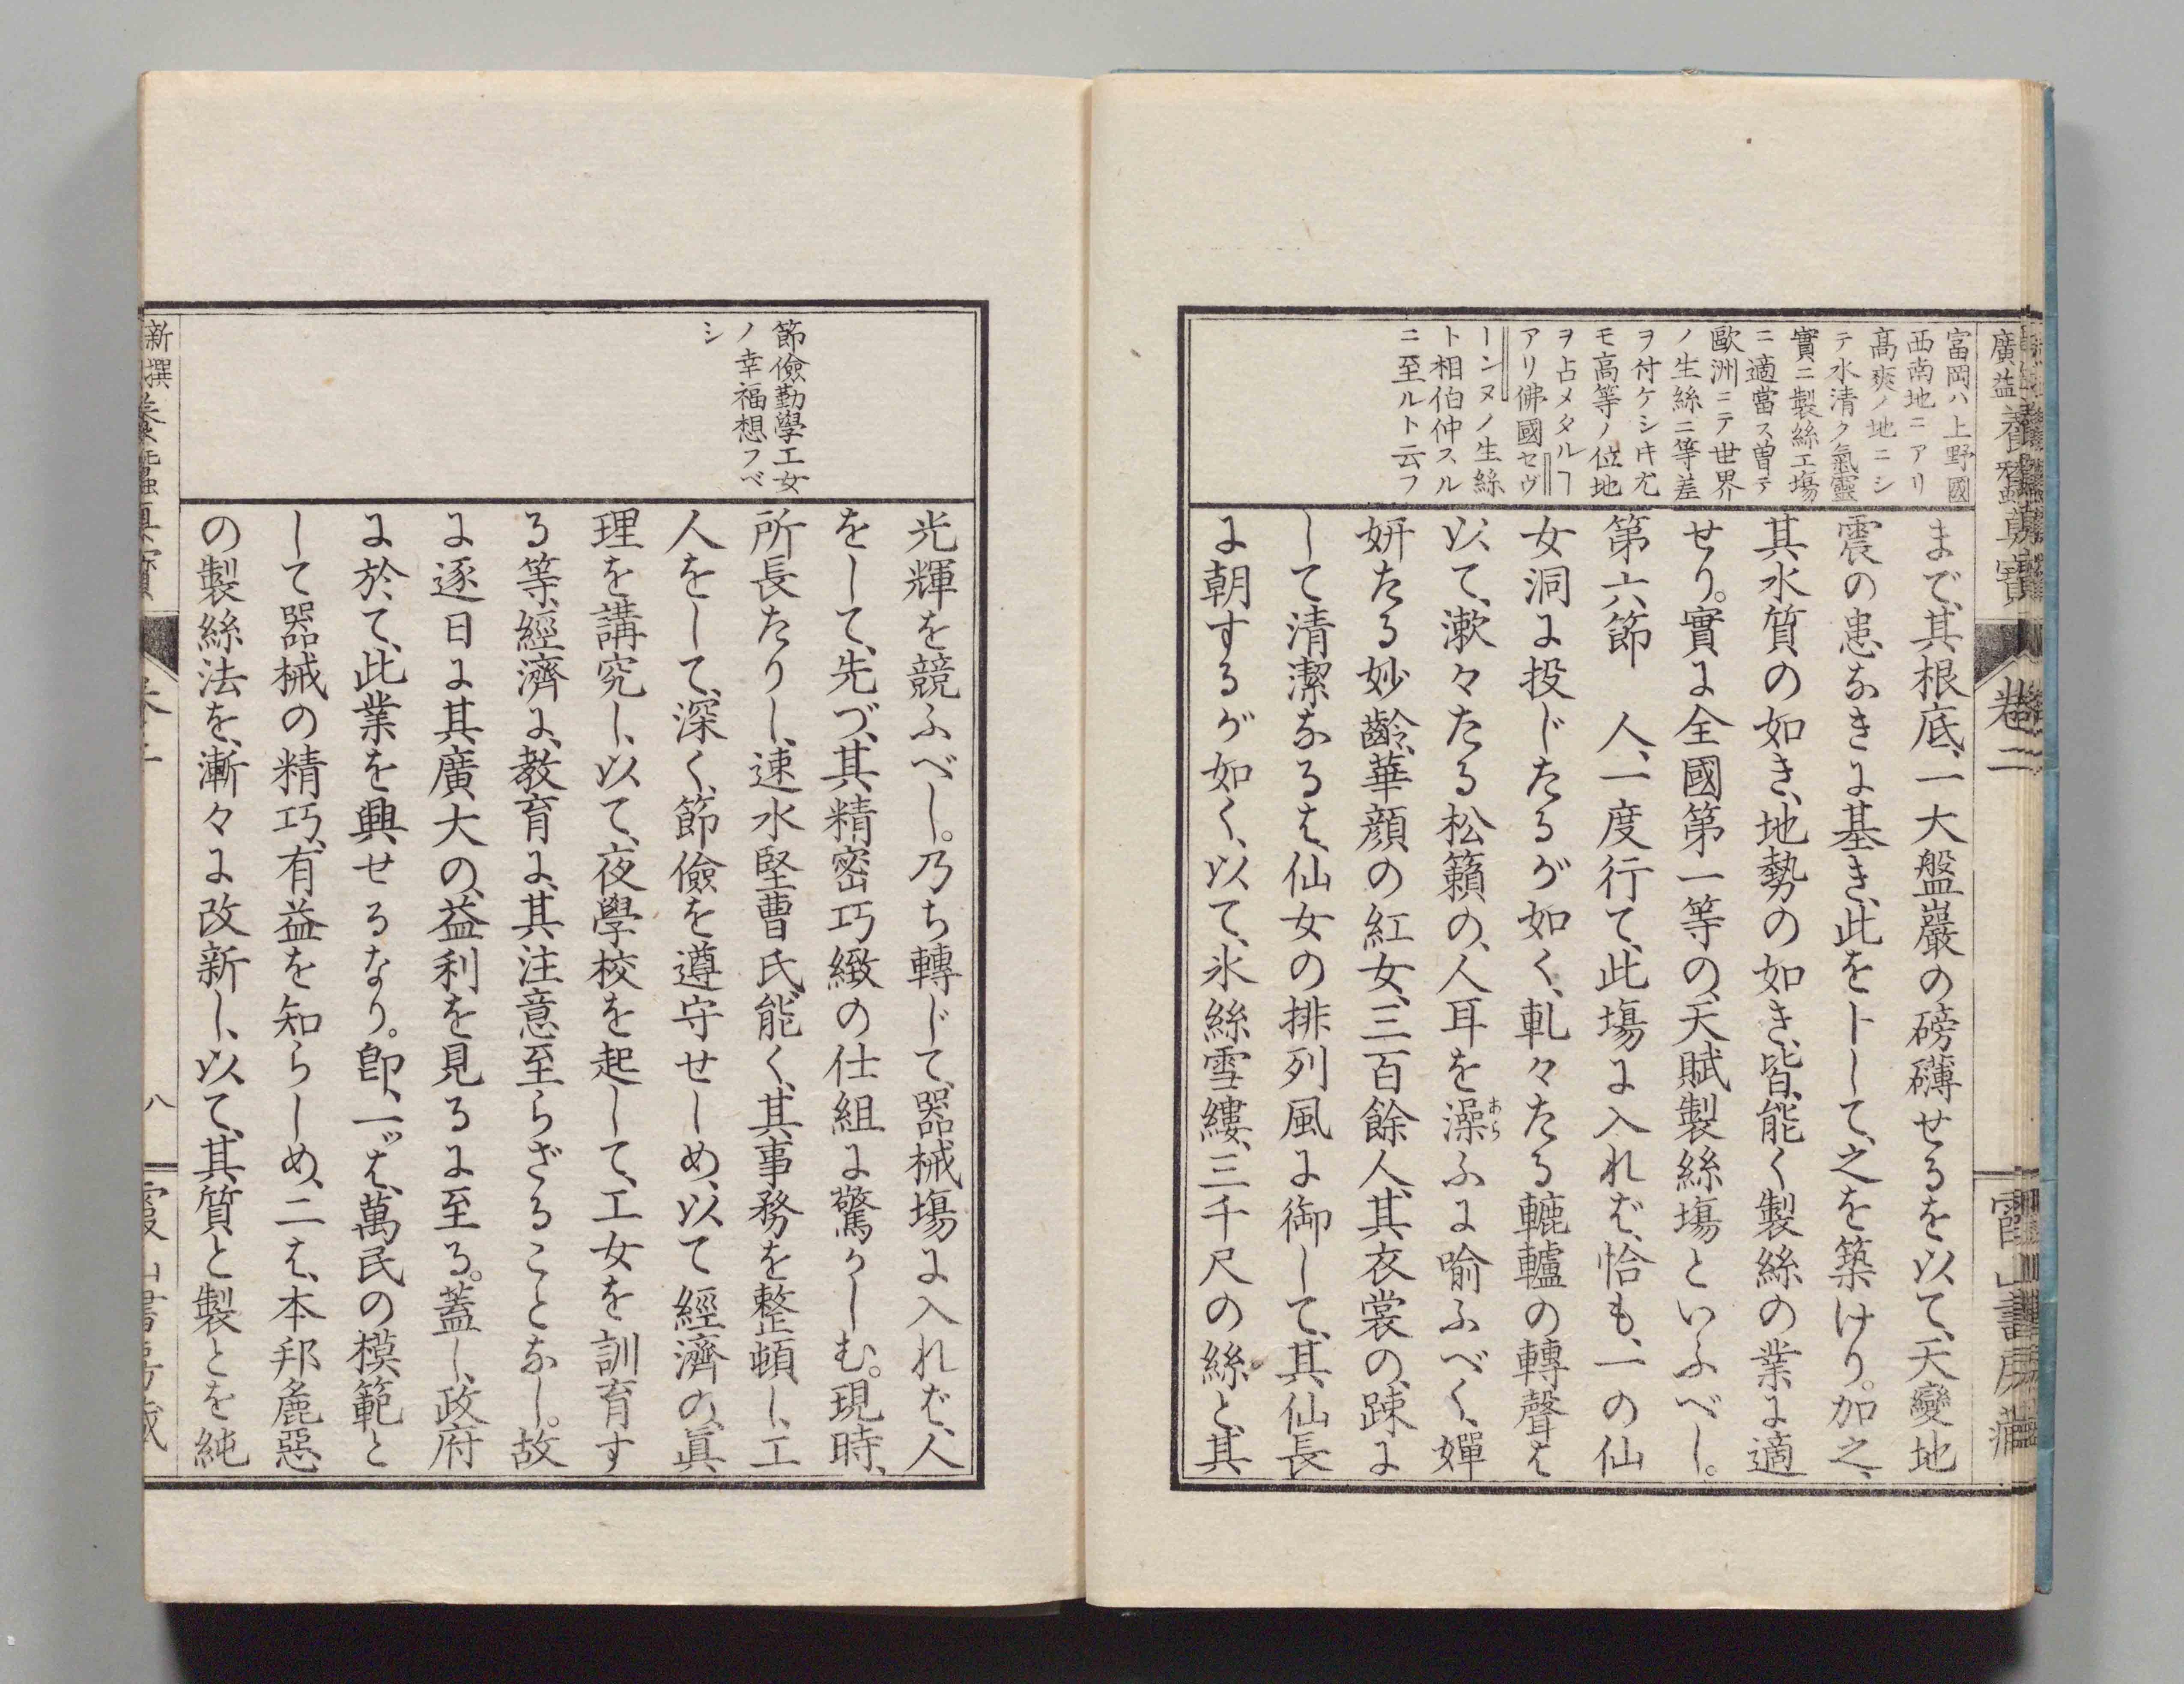 富岡ハ上野國
西南地ニアリ
髙爽ノ地ニシ
テ水清ク氣靈
實ニ製絲工塲
ニ適當ス曽テ
歐洲ニテ世界
ノ生絲ニ等差
ヲ付ケシ𪜈尤
モ高等ノ位地
ヲ占メタルヿ
アリ佛國セヴ
ーンヌノ生絲
ト相伯仲スル
ニ至ルト云フ
まで、其根底、一大盤巖の磅礴せるを以て、天變地
震の患なきに基き、此をトして、之を築けり。加之、
其水質の如き、地勢の如き、皆、能く製絲の業に適
せり。實に全國第一等の、天賦製絲塲といふべし。
第六節　人、一度行て、此塲に入れば、恰も、一の仙
女洞に投じたるが如く、軋々たる轆轤の轉聲は
以て、漱々たる松籟の、人耳を澡ふに喩ふべく、嬋
妍たる妙齡、華顔の紅女、三百餘人、其衣裳の、踈に
して清潔なるは、仙女の排列風に御して、其仙長
に朝するが如く、以て、氷絲雪縷、三千尺の絲と、其
節儉勤學工女
ノ幸福想フベ
シ
光輝を競ふべし。乃ち轉じて、器械塲に入れば、人
をして、先づ、其精密巧緻の仕組に驚かしむ。現時、
所長たりし、速水堅曹氏、能く、其事務を整頓し、工
人をして、深く、節儉を遵守せしめ、以て經濟の、眞
理を講究し、以て、夜學校を起して、工女を訓育す
る等、經濟に、教育に、其注意至らざることなし。故
に逐日に其廣大の、益利を見るに至る。蓋し、政府
に於て、此業を興せるなり。卽、一ツは、萬民の模範と
して器械の精巧、有益を知らしめ、二は、本邦麁惡
の製絲法を、漸々に改新し、以て、其質と製とを純